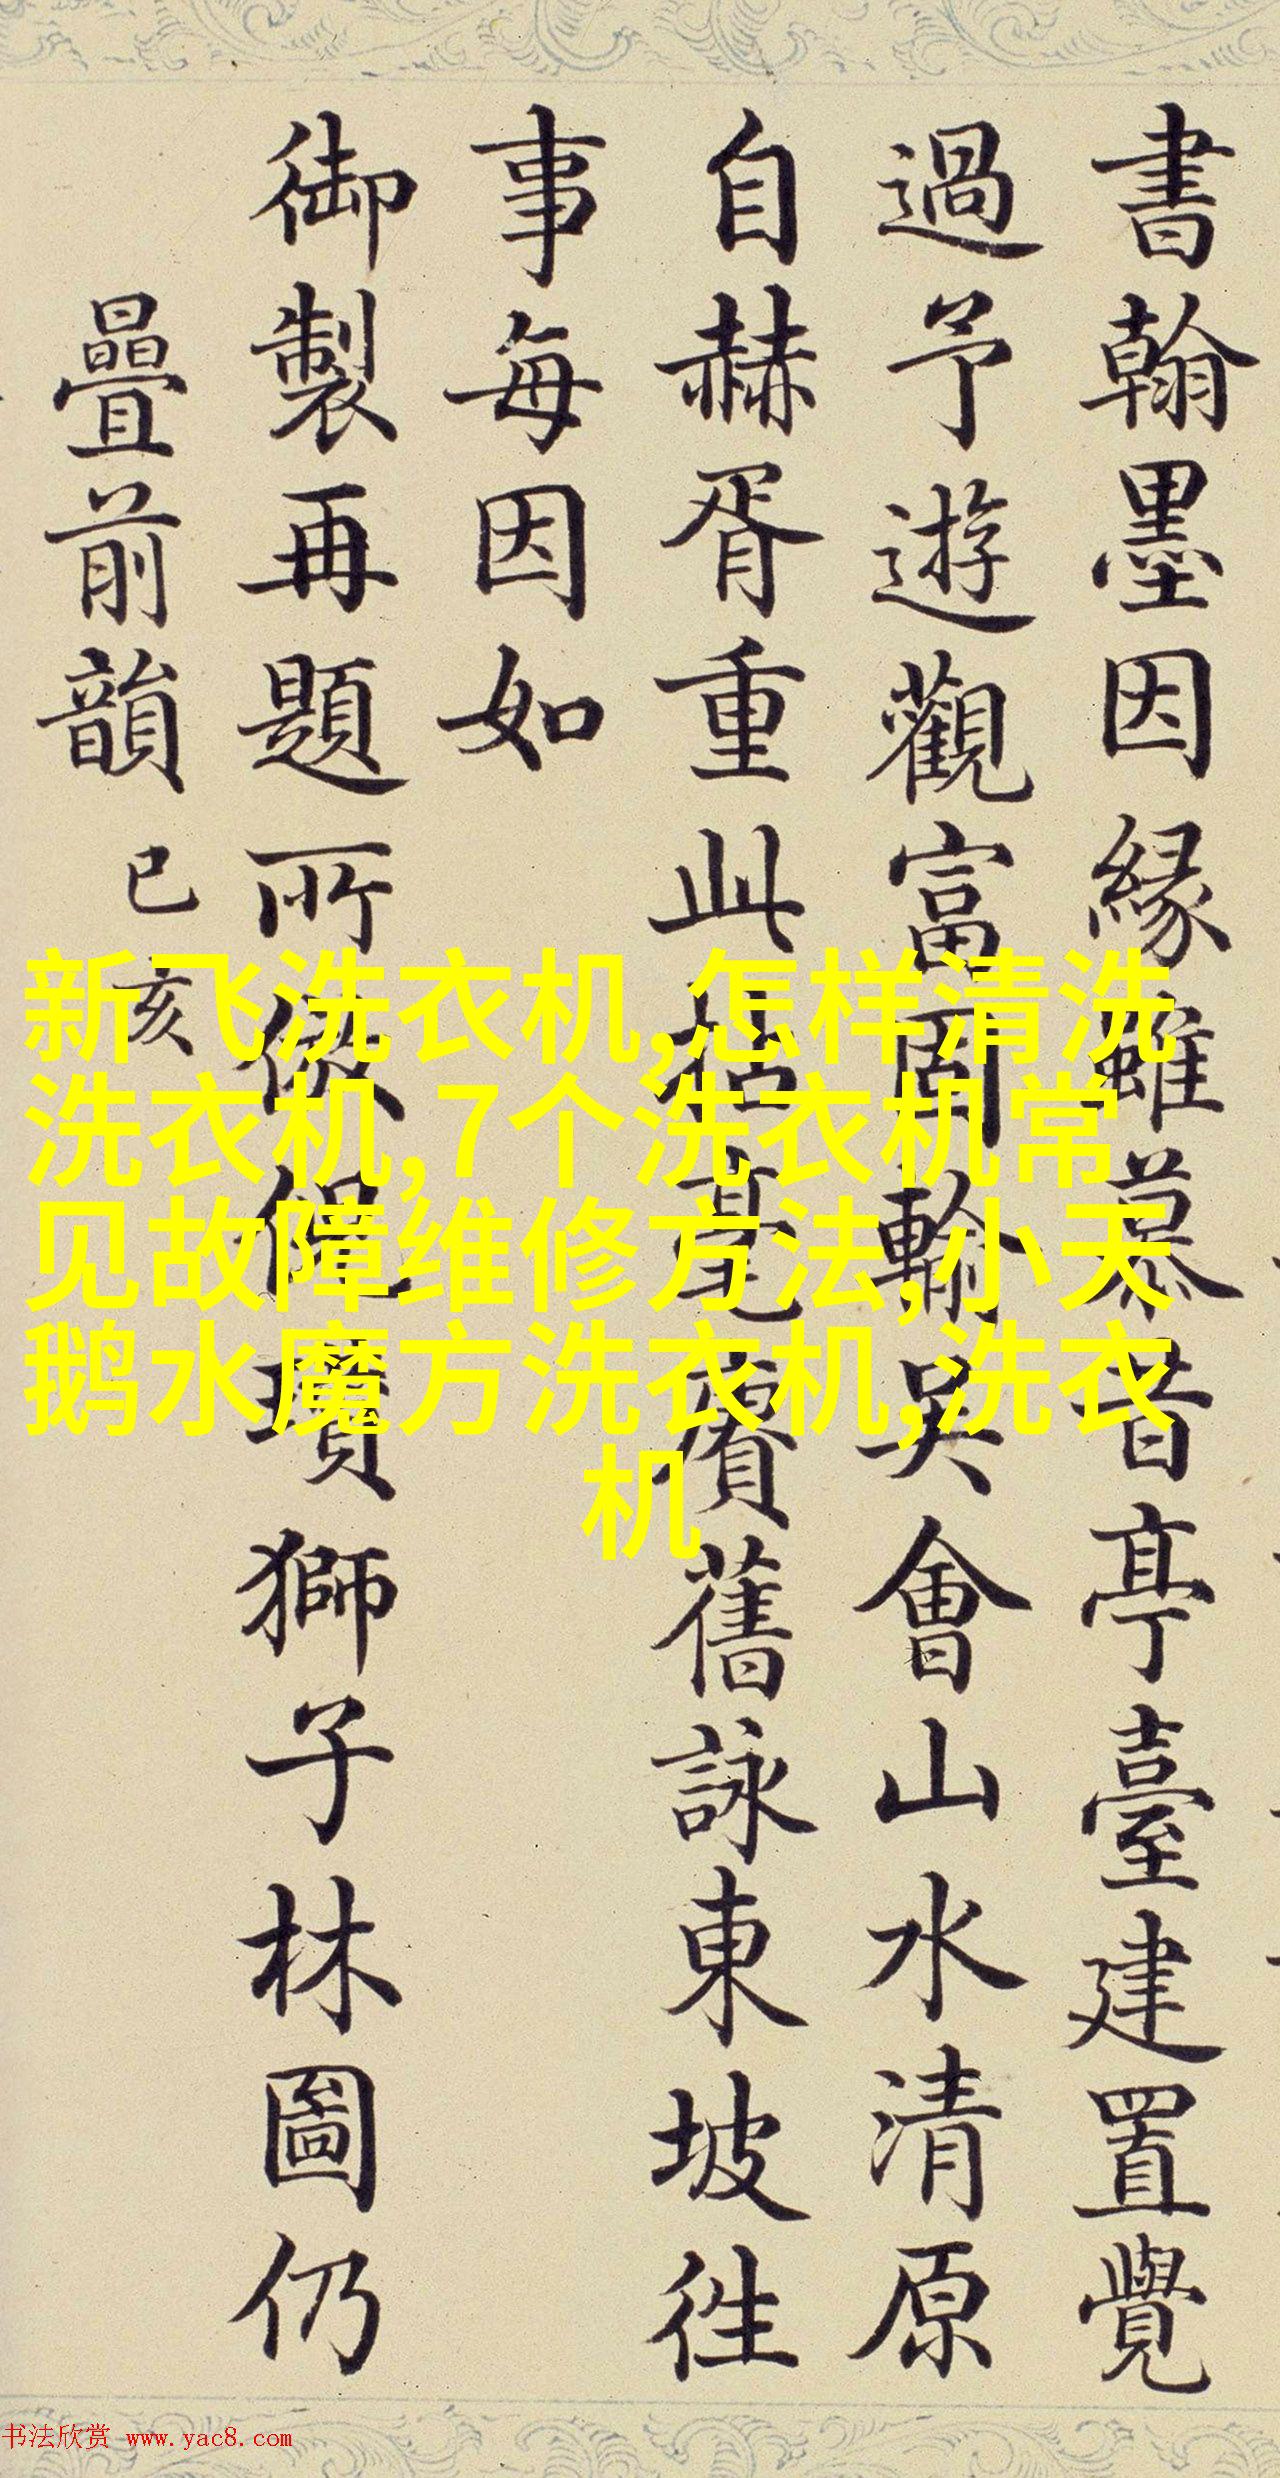 書翰墨因縁雖慕昔亭臺建置覺
過予遊觀富固輸吳會山水清原
自赫胥重此拈毫賡舊詠東坡徃
事每因如
御製再題所倣倪瓚獅子林圖仍
疊前韻 已亥
新飞洗衣机,怎样清洗
洗衣机,7个洗衣机常
见故障维修方法,小天
鹅水魔方洗衣机,洗衣
机
书法欣赏 www.yac8.com